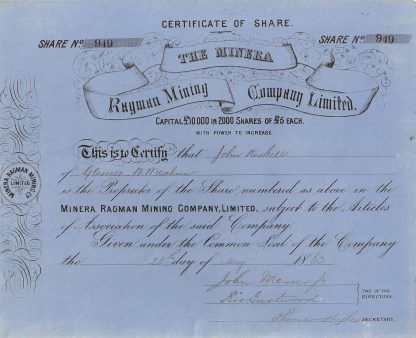 CERTIFICATE OF SHARE.
SHARE No 949 SHARE No 949
THE MINERA
Ragman Mining Company Limited.
CAPITAL £10,000 IN 2000 SHARES OF £5 EACH.
WITH POWER TO INCREASE.
This is to Certify that John
of
is the Proprietor of the Share numbered as above in the
MINERA RAGMAN MINING COMPANY, LIMITED. subject to the Articles
of Association of the said Company.
Given under the Common Seal of the Company
the 20th day of May 186
John
TWO OF THE
DIRECTORS
SECRETARY.
MINERA RAGMAN MINING CO
LIMITED